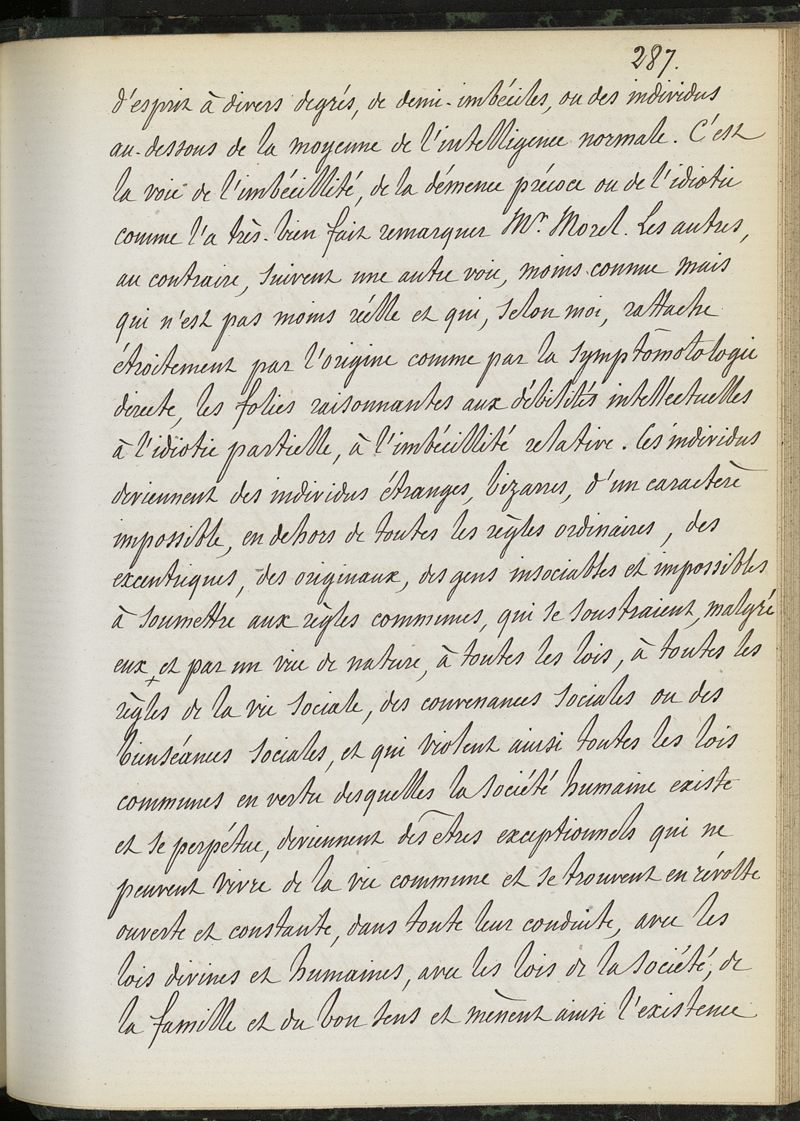 287.
d'esprit à divers degrés, de demi-imbéciles, ou des individus
au-dessous de la moyenne de l'intelligence normale. C'est
la voie de l'imbécillité, de la démence précoce ou de l'idiotie
comme l'a très-bien fait remarquer Mr Morel. Les autres,
au contraire, suivent une autre voie, moins connue mais
qui n'est pas moins réelle et qui, selon moi, rattache
étroitement par l'origine comme par la symptômotologie
directe, les folies raisonnantes aux débilités intellectuelles
à l'idiotie partielle, à l'imbécillité relative. Ces individus
deviennent des individus étranges, bizarres, d'un caractère
impossible, en dehors de toutes les règles ordinaires, des
excentriques, des originaux, des gens insociables et impossibles
à soumettre aux règles communes, qui se soustraient, malgré
eux, et par un vice de nature, à toutes les lois, à toutes les
règles de la vie sociale, des convenances sociales ou des
bienséances sociales, et qui violent ainsi toutes les lois
communes en vertu desquelles la société humaine existe
et se perpétue, deviennent des êtres exceptionnels qui ne
peuvent vivre de la vie commune et se trouvent en révolte
ouverte et constante, dans toute leur conduite, avec les
lois divines et humaines, avec les lois de la société, de
la famille et du bon sens et mènent ainsi l'existence